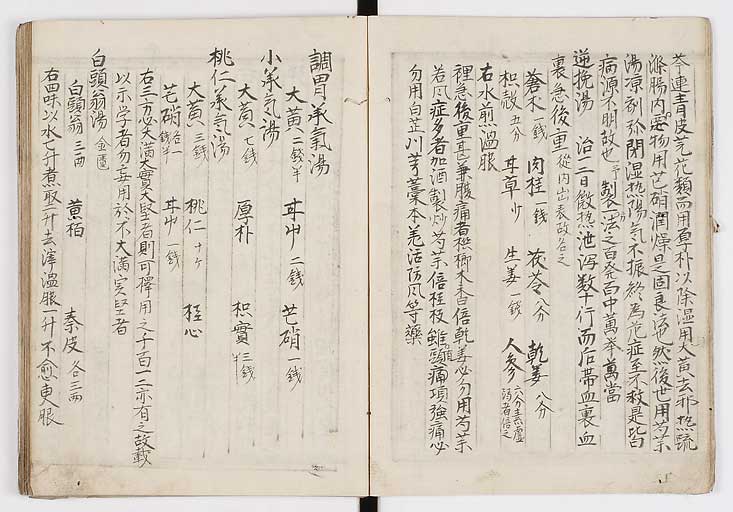 芩連青皮芫花類而用厚朴以除湿用大黄去邪熱疏
滌腸内悪物用芒硝潤燥是固良法也然後世用芍薬
湯凉剤弥閉湿熱陽気不振終為危症至不救是皆
病源不明故也予製法之百発百中萬挙萬當
逆挽湯 治一二日微熱泄泻数十行而后帯血裏血
裏急後重 從内出表故名之
蒼朮一銭 肉桂一銭 茯苓八分 乾姜八分
枳殻五分 甘草少 生姜一銭 人参六分虚弱者倍之
右水煎温服
裡急後重甚兼腹痛者檳榔木香倍乾姜必勿用芍薬
若風症多者加酒製炒芍薬倍桂枝雖頭痛項強痛必
勿用白芷川芎藁本羌活防風等藥
調胃承氣湯
大黄二銭半 甘草二銭 芒硝一銭
小承気湯
大黄七銭 厚朴 枳實三銭半
桃仁承気湯
大黄三銭 桃仁十ヶ 桂心
芒硝各一銭半 甘草一銭
右三方必大満大實大堅者則可擇用之千百一二亦有之故載
以示学者勿妄用於不大満実堅者
白頭翁湯 金匱
白頭翁二両 黄柏 秦皮各三両
右四味以水七升煮取二升去滓温服一升不愈更服